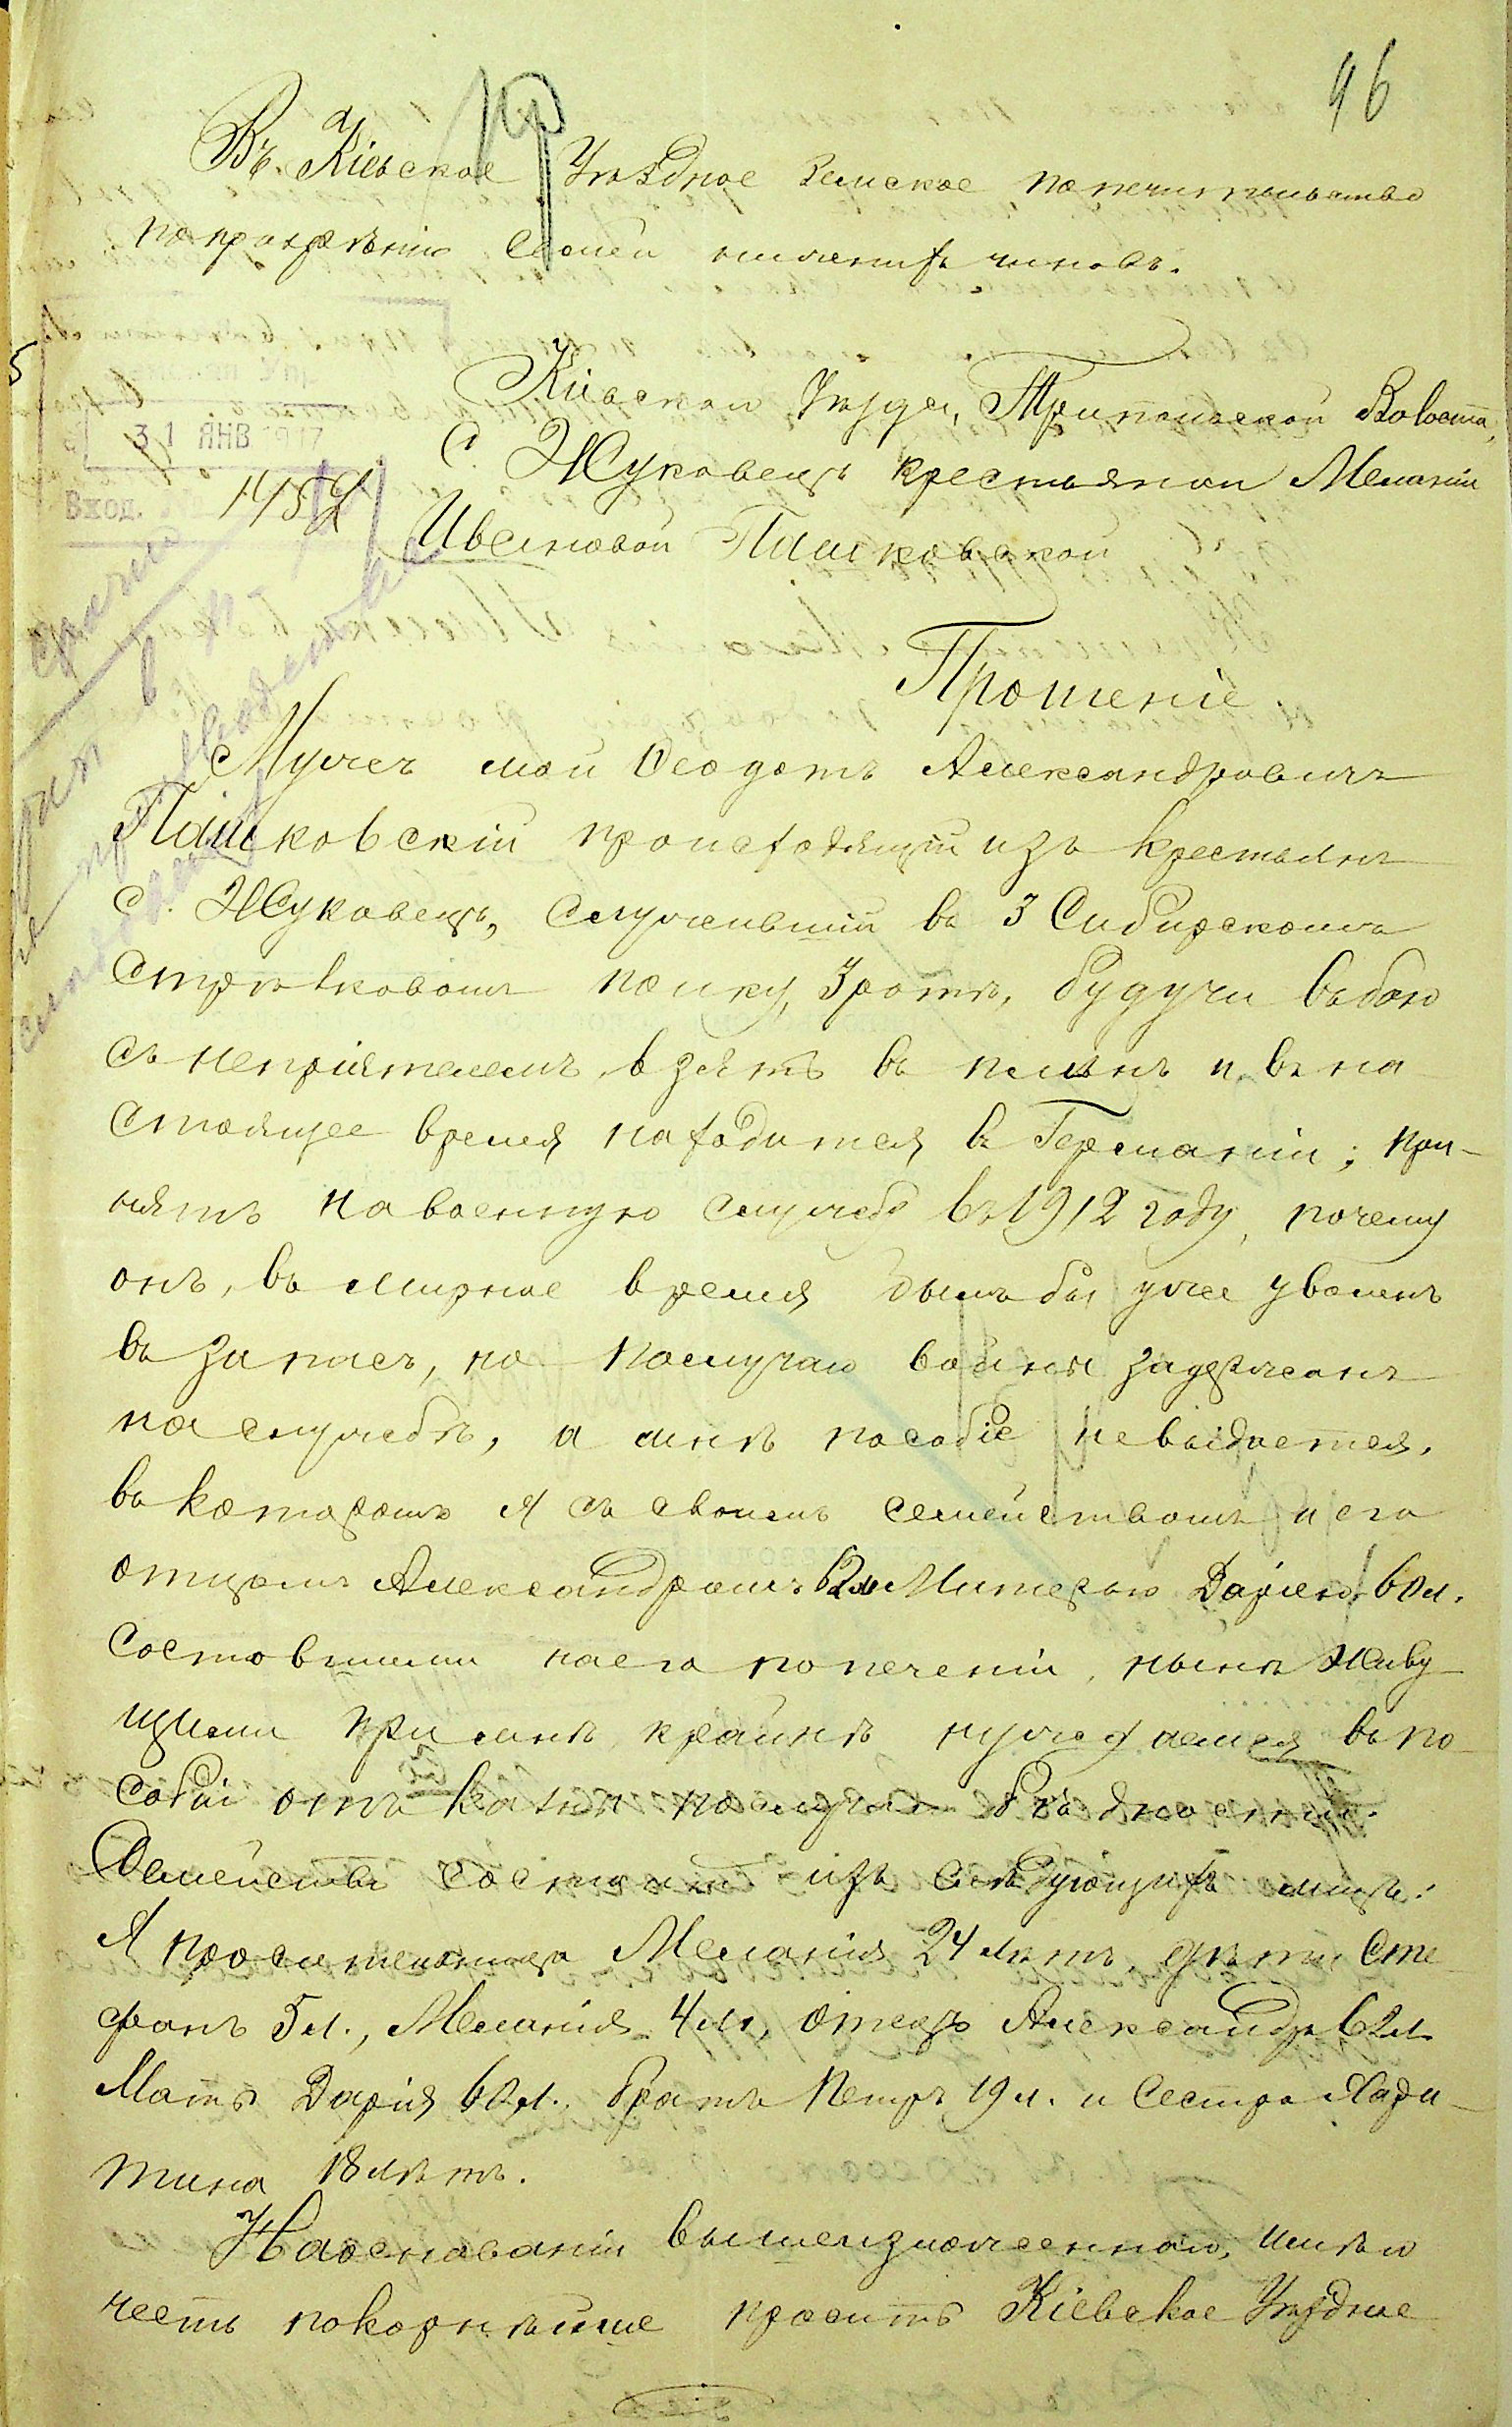 96
Въ Кіевское Уѣздное Земское попечительство
попризрѣнію семей нижнихъ чиновъ.
Кіевскаго Уѣзда, Трипольской Волости,
31 ЯНВ 1917
с. Жуковецъ крестьянки Меланіи
Вход. 1458
Ивановой Пашковской
Прошеніе
Мужъ мой Феодотъ Александровичъ
Пашковскій происходящій изъ крестьянъ
с. Жуковецъ, служившій въ 3 Сибирскомъ
Стрѣлковомъ полку, 3 ротѣ, будучи въ бою
съ непріятелемъ, взятъ въ плѣнъ и въ на
стоящее время находится въ Германіи; при-
нятъ на военную службу въ 1912 году, почему
онъ, въ мирное время былъ бы уже уволенъ
въ запасъ, но по случаю войны задержанъ
на службѣ, а мнѣ пособіе невыдается,
въ которомъ я съ своимъ семействомъ и его
отцомъ Александромъ 62л Матерью Даріею 60л.
состовшими на его попеченіи, нынѣ живу
щими при мнѣ, крайнѣ нуждаемся въ по-
собіи отъ казны по случаю бѣдности.
Семейство состоитъ изъ слѣдующихъ лицъ:
Я просительница Меланія 24 лѣтъ, дѣти Сте
фанъ 5л., Меланія 4л., отецъ Александръ 62л.
Мать Дарія 60л., братъ Петръ 19л. и Сестра Хари-
тина 18 лѣтъ.
На основаніи вышеизложеннаго, имѣю
честь покорнѣйше просить Кіевское Уѣздное